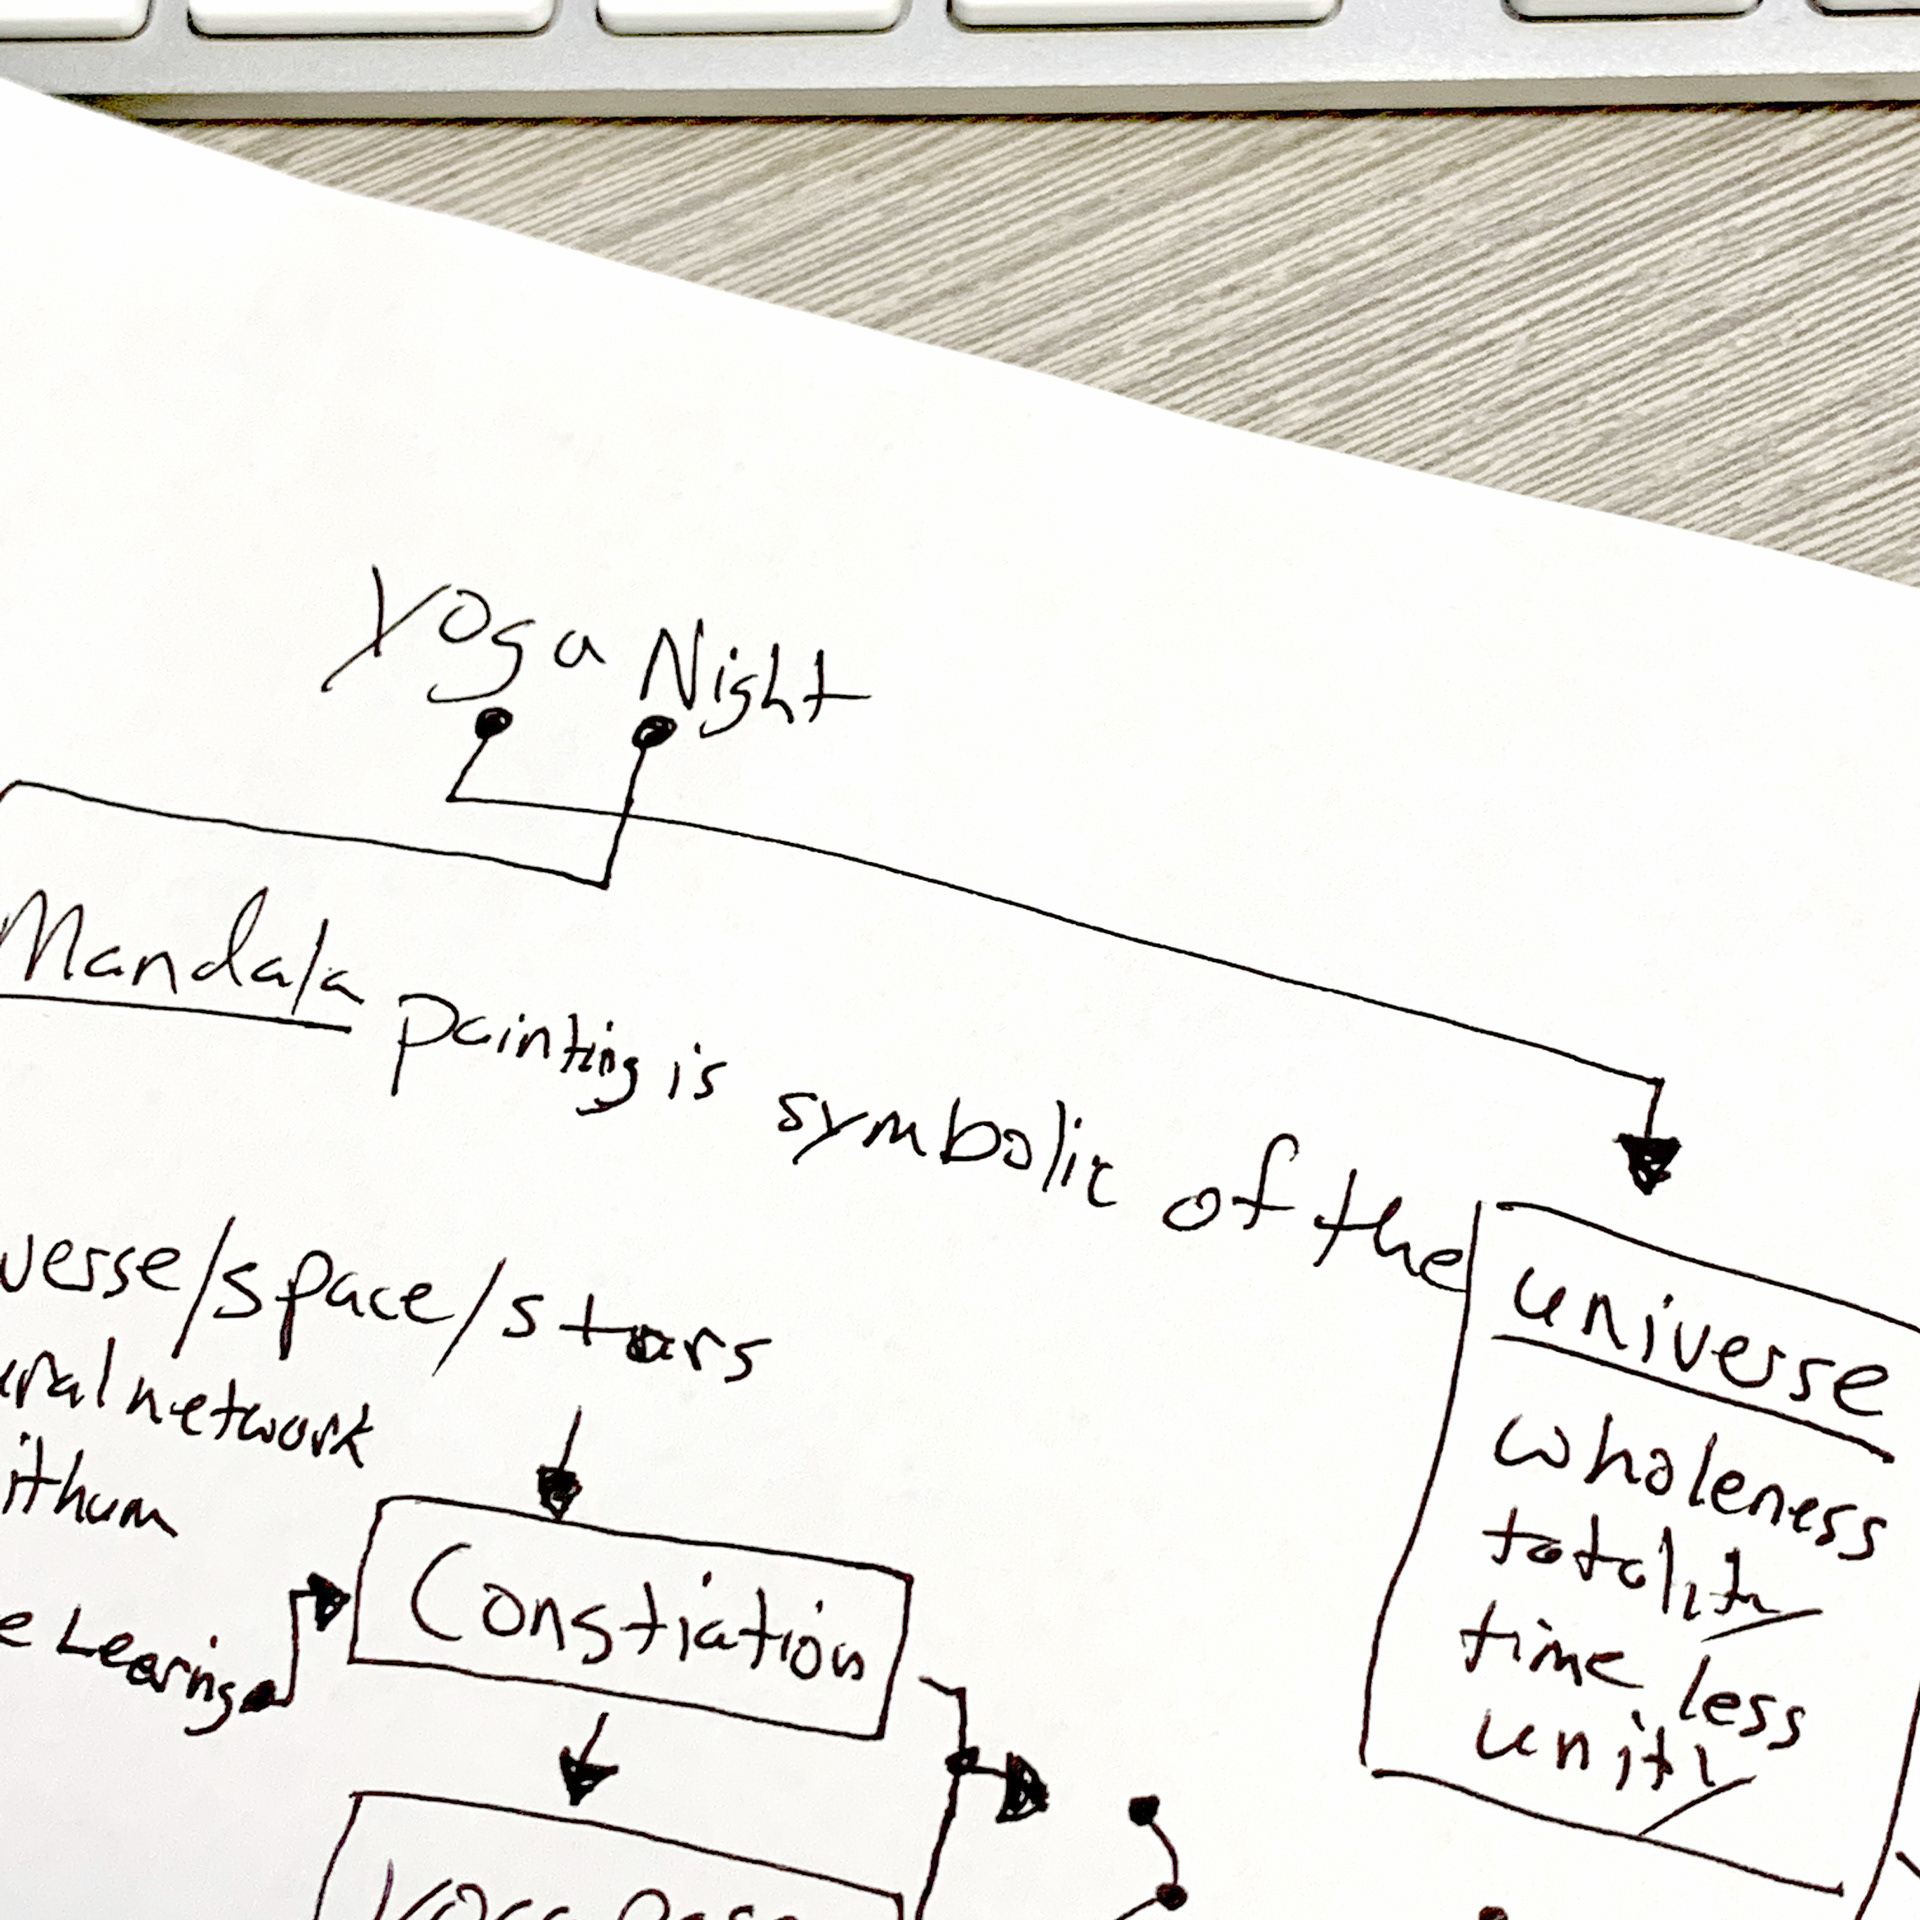 Yoga Night
Mandala painting is symbolic of the universe
wholeness
totality
time less
unity
verse/space/stars
ral network
ithum
e Learing
Constiation
Yoga Pose